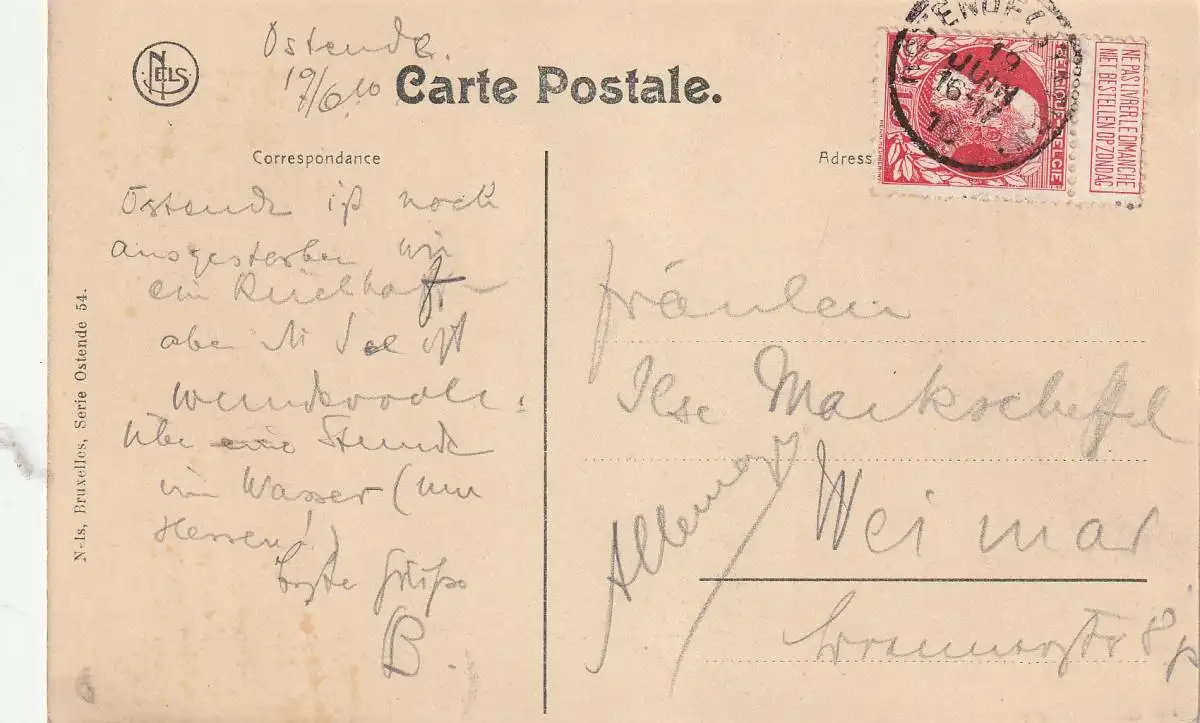 NELS
Ostende.
19/6 10
Carte Postale.
Correspondance
Ostende ist noch
ausgestorben wie
ein
aber die See ist
wundervoll.
Über eine Stunde
im Wasser (nur
Herren!)
Beste Grüße
B.
N-ls, Bruxelles, Serie Ostende 54.
Adress
OSTENDE
19
JUIN
16-17
10
BELGIQUE-BELGIE
NE PAS LIVRER LE DIMANCHE
NIET BESTELLEN OP ZONDAG
Fräulein
Ilse Markscheffel
Weimar
8